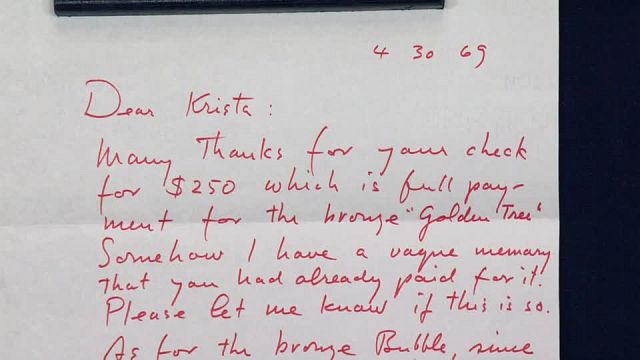 4 30 69
Dear Krista:
Many Thanks for your check
for $250 which is full pay-
ment for the bronze "Golden Tree"
Somehow I have a vague memory
that you had already paid for it.
Please let me know if this is so.
As for the bronze Bubble, since